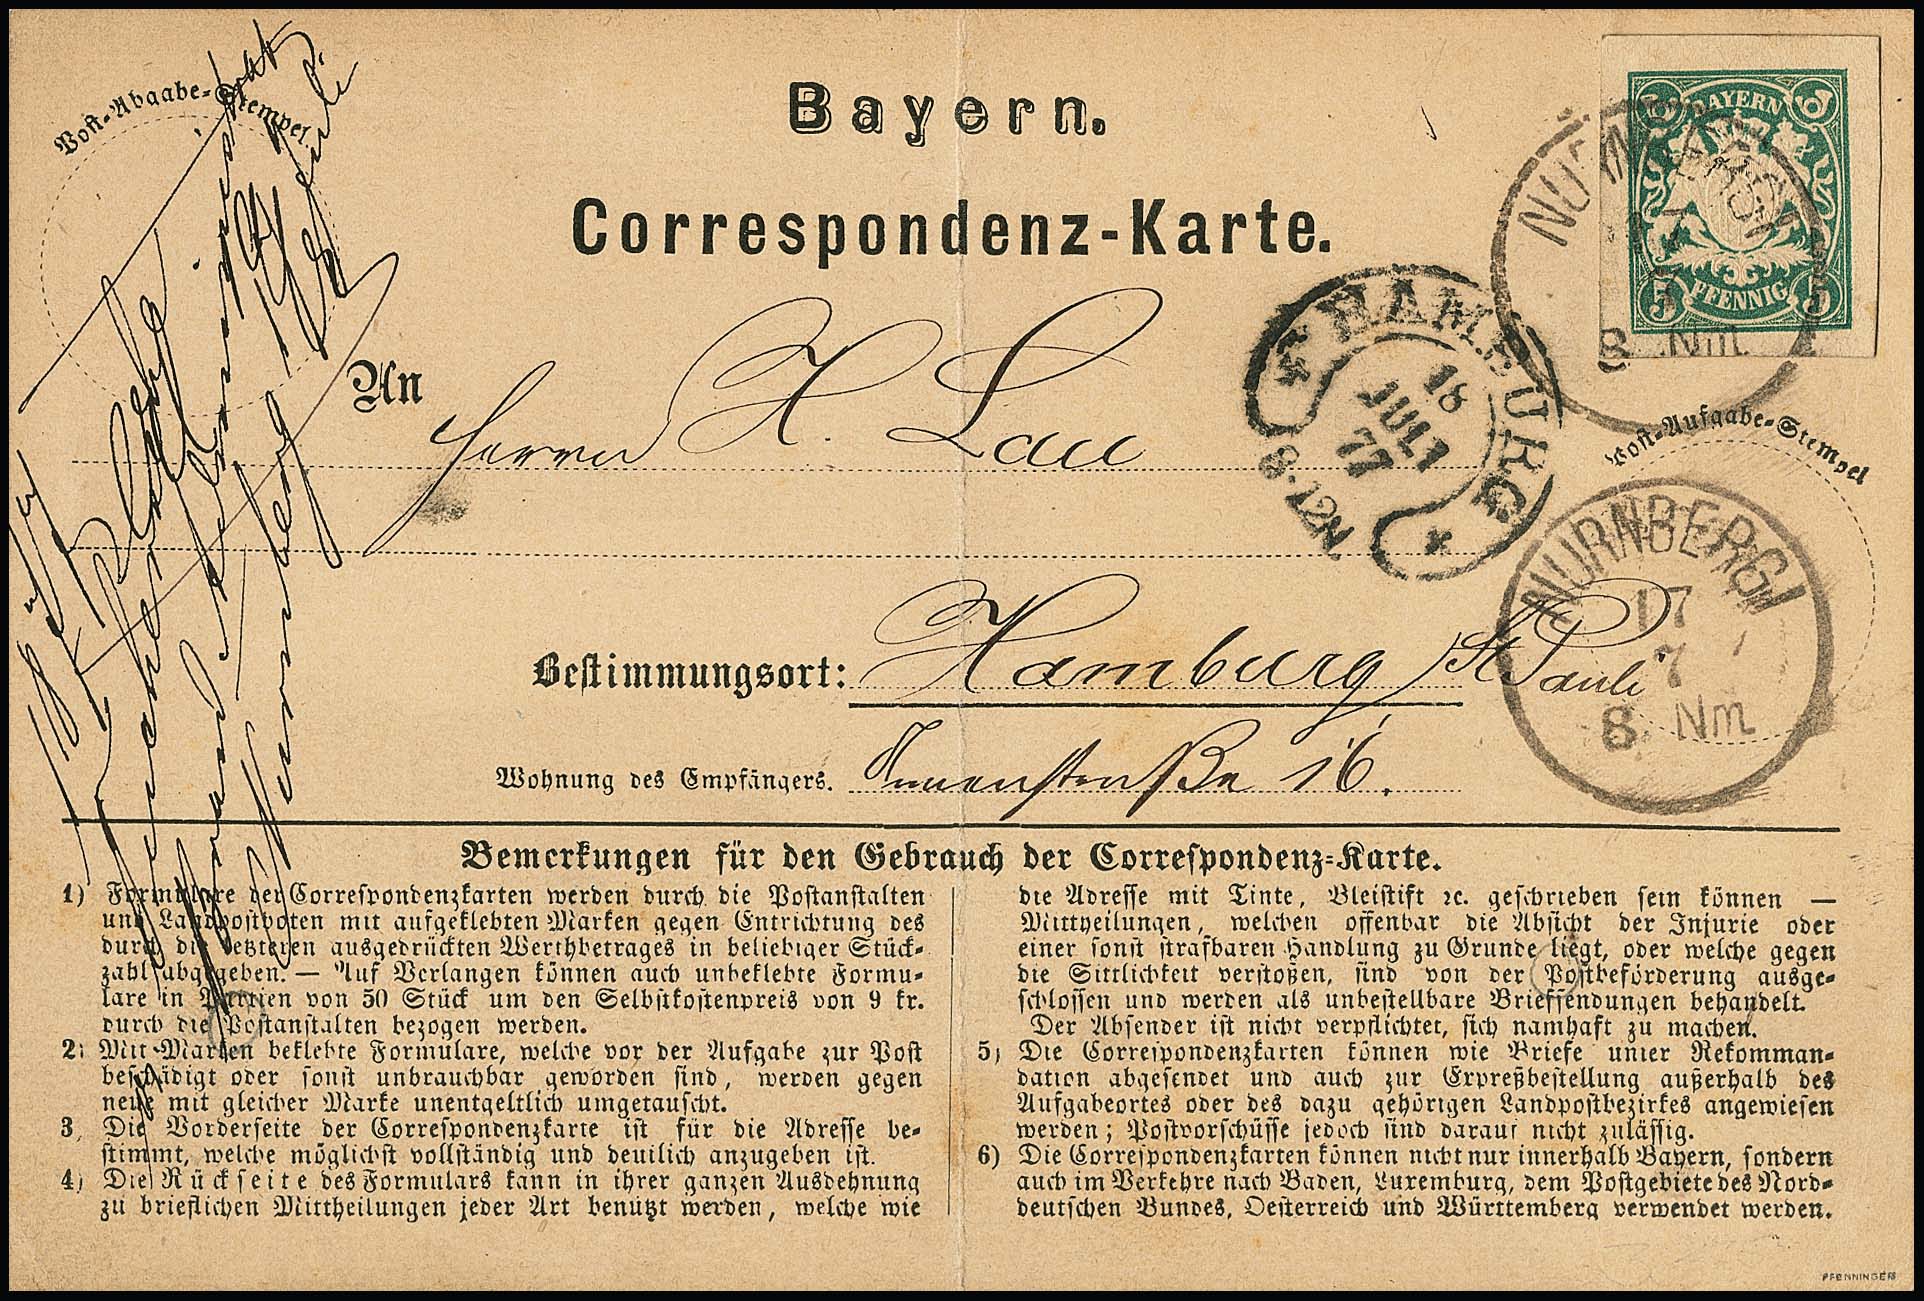 Post-Abgabe-Stempel.
Bayern.
Correspondenz-Karte.
BAYERN
5 PFENNIG 5
NÜRNBERG I
8 Nm
HAMBURG
18
JULI
77
8-12N.
Post-Aufgabe-Stempel
NÜRNBERG I
17
7
8 Nm
An
Herrn H. Lau
Bestimmungsort: Hamburg / St Pauli
Wohnung des Empfängers. straße 16.
Nürnberg
Bemerkungen für den Gebrauch der Correspondenz-Karte.
1) Formulare der Correspondenzkarten werden durch die Postanstalten
und Landpostboten mit aufgeklebten Marken gegen Entrichtung des
durch die letzteren ausgedrückten Werthbetrages in beliebiger Stück-
zahl abgegeben. — Auf Verlangen können auch unbeklebte Formu-
lare in Partien von 50 Stück um den Selbstkostenpreis von 9 kr.
durch die Postanstalten bezogen werden.
2) Mit Marken beklebte Formulare, welche vor der Aufgabe zur Post
beschädigt oder sonst unbrauchbar geworden sind, werden gegen
neue mit gleicher Marke unentgeltlich umgetauscht.
3) Die Vorderseite der Correspondenzkarte ist für die Adresse be-
stimmt, welche möglichst vollständig und deutlich anzugeben ist.
4) Die Rückseite des Formulars kann in ihrer ganzen Ausdehnung
zu brieflichen Mittheilungen jeder Art benützt werden, welche wie
die Adresse mit Tinte, Bleistift ꝛc. geschrieben sein können —
Mittheilungen, welchen offenbar die Absicht der Injurie oder
einer sonst strafbaren Handlung zu Grunde liegt, oder welche gegen
die Sittlichkeit verstoßen, sind von der Postbeförderung ausge-
schlossen und werden als unbestellbare Briefsendungen behandelt.
Der Absender ist nicht verpflichtet, sich namhaft zu machen.
5) Die Correspondenzkarten können wie Briefe unter Rekomman-
dation abgesendet und auch zur Expreßbestellung außerhalb des
Aufgabeortes oder des dazu gehörigen Landpostbezirkes angewiesen
werden; Postvorschüsse jedoch sind darauf nicht zulässig.
6) Die Correspondenzkarten können nicht nur innerhalb Bayern, sondern
auch im Verkehre nach Baden, Luxemburg, dem Postgebiete des Nord-
deutschen Bundes, Oesterreich und Württemberg verwendet werden.
PFENNINGER